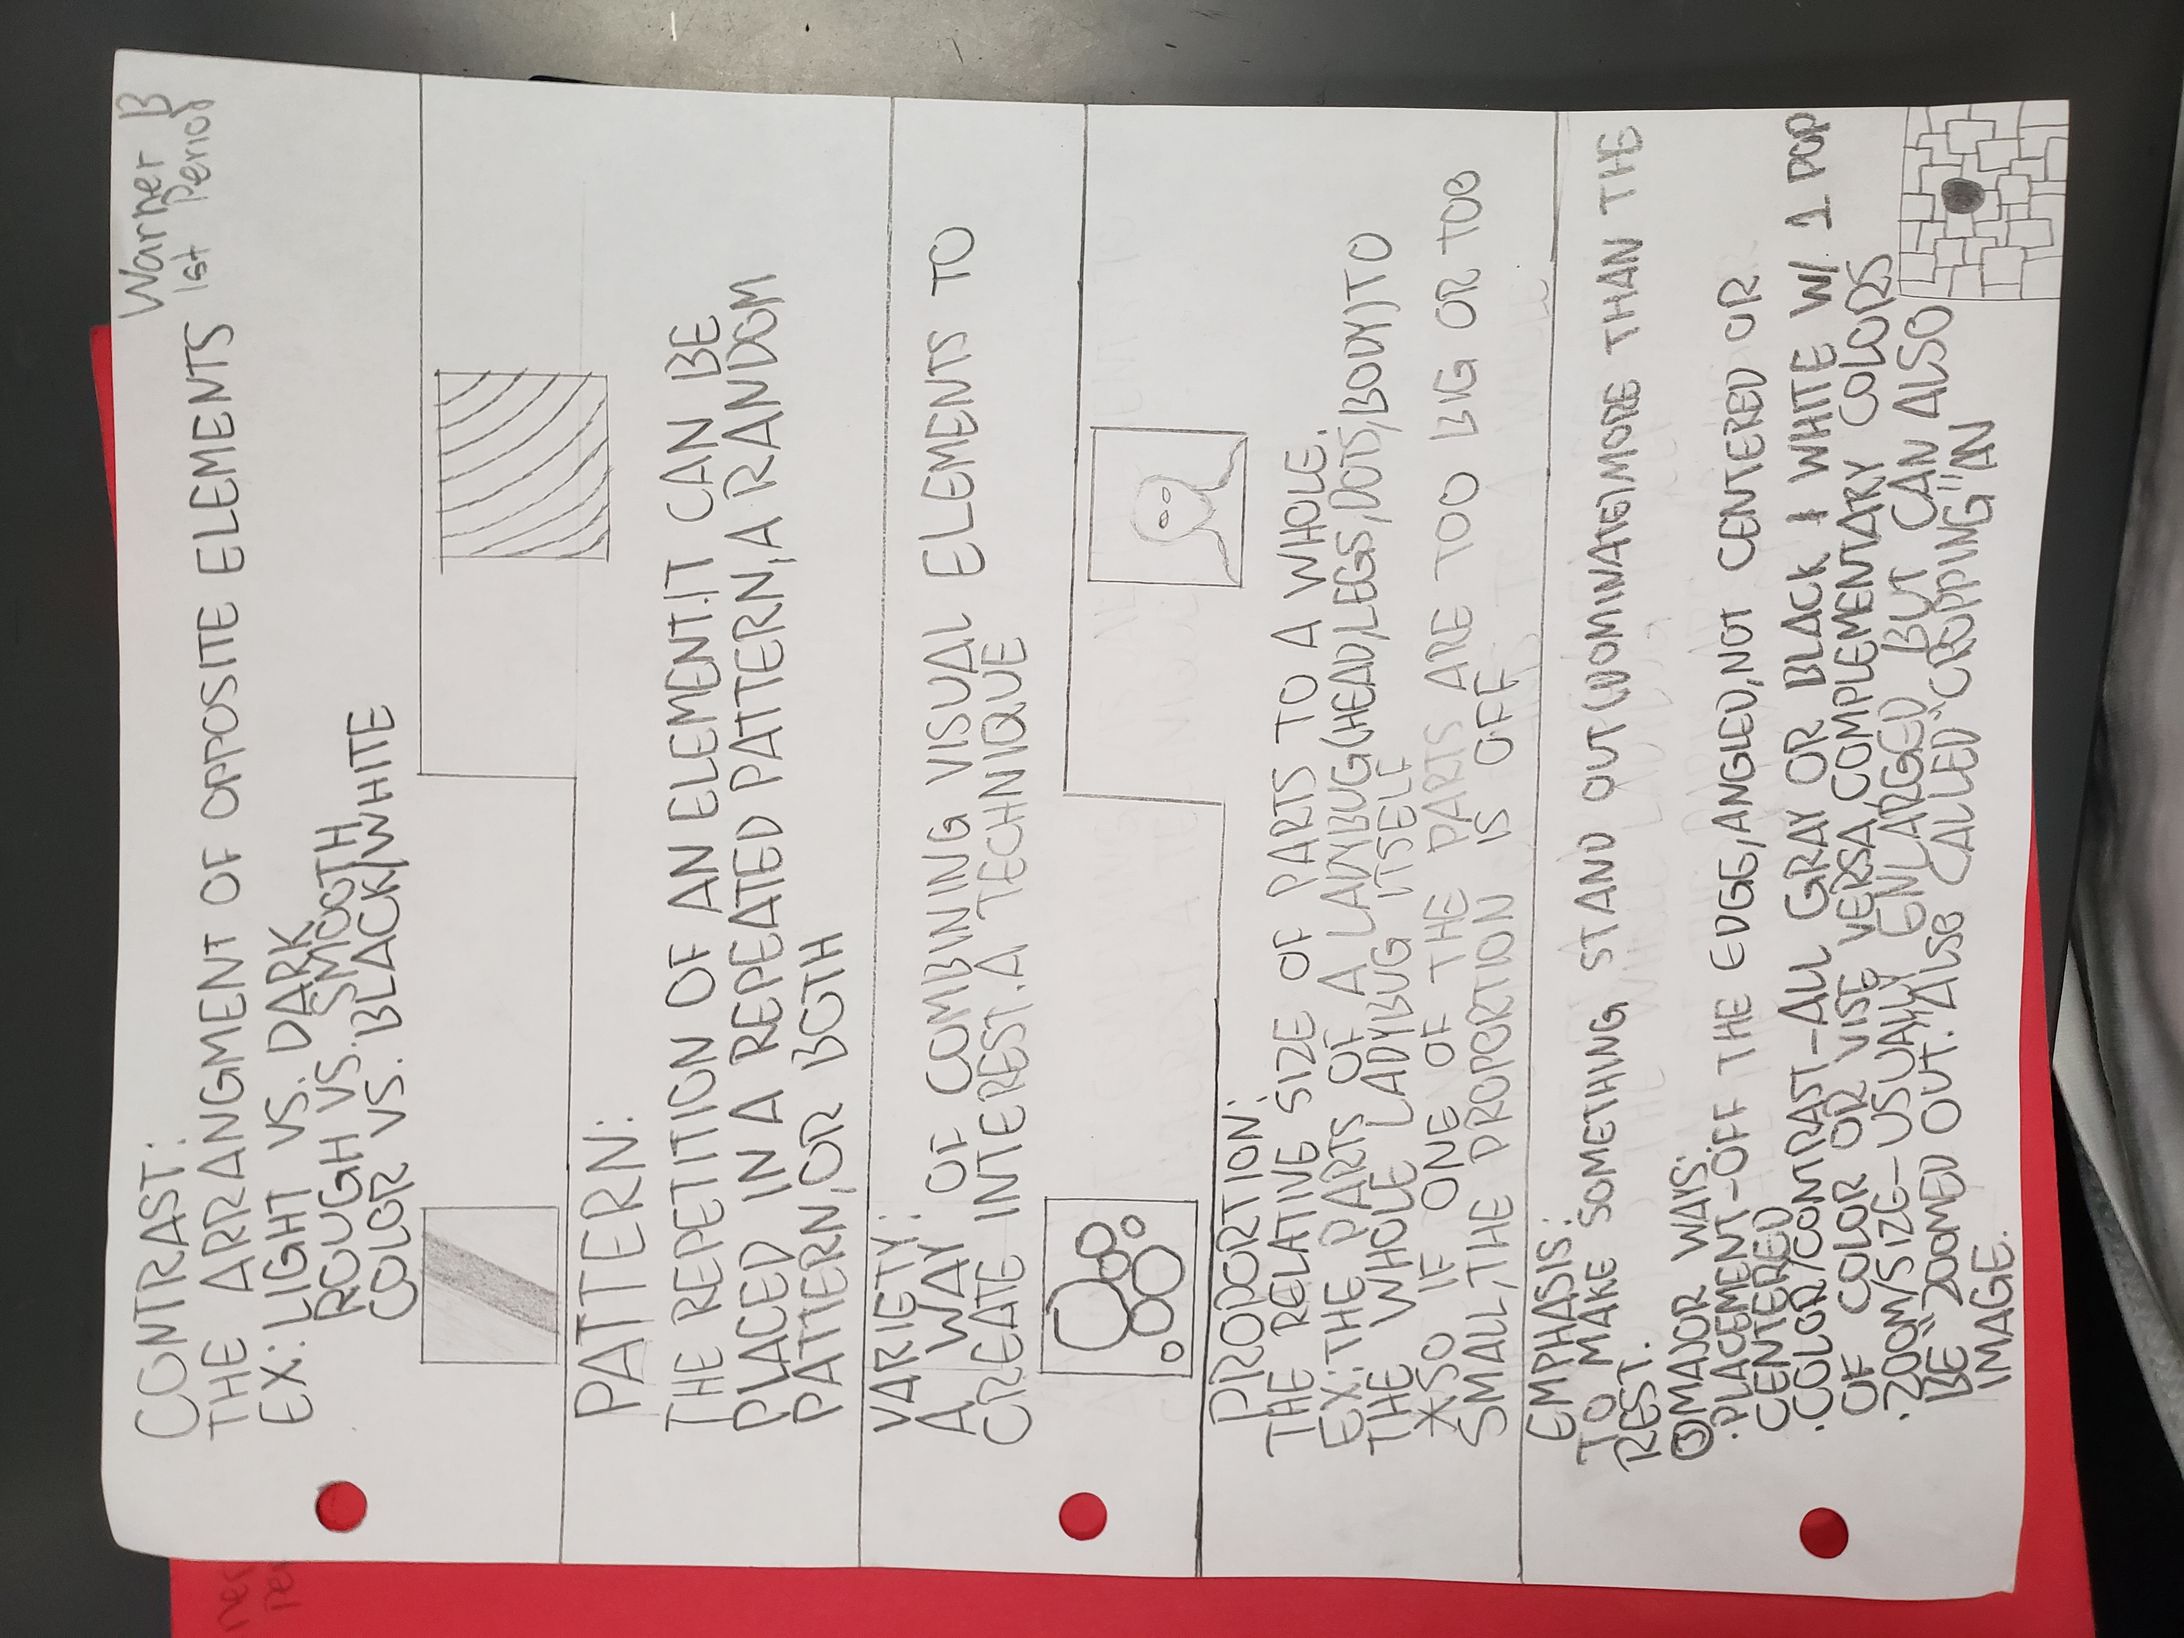 Warner B
1st Period
CONTRAST:
THE ARRANGMENT OF OPPOSITE ELEMENTS
EX: LIGHT VS. DARK
ROUGH VS. SMOOTH
COLOR VS. BLACK/WHITE
PATTERN:
THE REPETITION OF AN ELEMENT.IT CAN BE
PLACED IN A REPEATED PATTERN,A RANDOM
PATTERN,OR BOTH
VARIETY:
A WAY OF COMBINING VISUAL ELEMENTS TO
CREATE INTEREST.A TECHNIQUE
PROPORTION:
THE RELATIVE SIZE OF PARTS TO A WHOLE.
EX:THE PARTS OF A LADYBUG(HEAD,LEGS,DOTS,BODY)TO
THE WHOLE LADYBUG ITSELF
*SO IF ONE OF THE PARTS ARE TOO BIG OR TOO
SMALL,THE PROPORTION IS OFF
EMPHASIS:
TO MAKE SOMETHING STAND OUT(DOMINATE)MORE THAN THE
REST.
3MAJOR WAYS:
.PLACEMENT-OFF THE EDGE,ANGLED,NOT CENTERED OR
CENTERED
.COLOR/CONTRAST-ALL GRAY OR BLACK & WHITE W/ 1 POP
OF COLOR OR VISE VERSA,COMPLEMENTARY COLORS
.ZOOM/SIZE-USUALLY ENLARGED BUT CAN ALSO
BE "ZOOMED OUT.ALSO CALLED"CROPPING"AN
IMAGE.